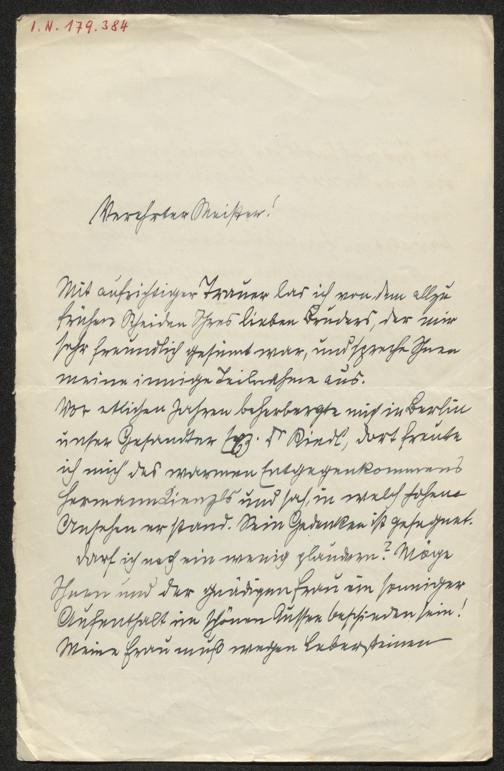 I.N. 179.384
Verehrter Meister!
Mit aufrichtiger Trauer las ich von dem allzu
frühen Scheiden Ihres lieben Bruders, der mir
sehr freundlich gesinnt war, und spreche Ihnen
meine innige Teilnahme aus.
Vor etlichen Jahren beherbergte mich in Berlin
unser Gesandter Exz. Dr Riedl, dort freute
ich mich des warmen Entgegenkommens
Hermann Kienzls und sah, in welch hohem
Ansehen er stand. Sein Gedenken ist gesegnet.
Darf ich noch ein wenig plaudern? Möge
Ihnen und der gnädigen Frau ein sonniger
Aufenthalt im schönen Aussee beschieden sein!
Meine Frau muß wegen Lebersteinen